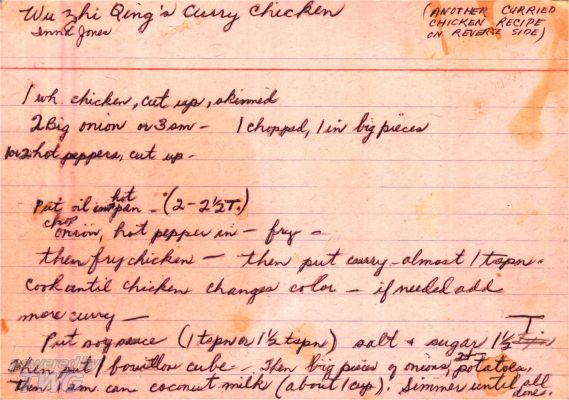 Wu Zhi Qing's Curry Chicken
Inna Jones
(ANOTHER CURRIED
CHICKEN RECIPE
ON REVERSE SIDE)
1 wh. chicken, cut up, skinned
2 Big onion or 3 sm - 1 chopped, 1 in big pieces
1 or 2 hot peppers, cut up -
Put oil in hot pan - (2 - 2 1/2 T.)
chop onion, hot pepper in - fry -
then fry chicken - then put curry - almost 1 tspn.
Cook until chicken changes color - if needed add
more curry -
Put soy sauce (1 tspn or 1 1/2 tspn) salt & sugar 1 1/2 T
Then put 1 bouillon cube - Then big pieces of onions, potatoes,
then 1 sm. can coconut milk (about 1 cup). Simmer until all done.
powered by
TWG